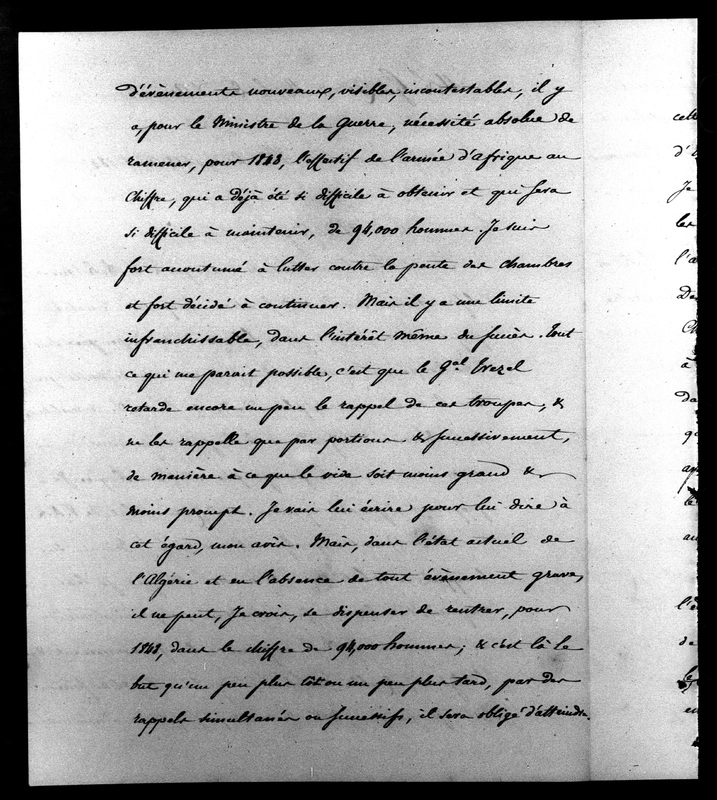 d'évènements nouveaux, visibles, incontestables, il y
a, pour le Ministre de la Guerre, nécessité absolue de
ramener, pour 1848, l'effectif de l'armée d'Afrique au
Chiffre, qui a déjà été si difficile à obtenir et qui sera
si difficile à maintenir, de 94,000 hommes. Je suis
fort accoutumé à lutter contre la pente des chambres
et fort décidé à continuer. Mais il y a une limite
infranchissable, dans l'intérêt même du succès. Tout
ce qui me parait possible, c'est que le Gal Trezel
retarde encore un peu le rappel de ces troupes, &
ne les rappelle que par portions & successivement,
de manière à ce que le vide soit moins grand &
moins prompt. Je vais lui écrire pour lui dire à
cet égard, mon avis. Mais, dans l'état actuel de
l'Algérie et en l'absence de tout évènement grave,
il ne peut, Je crois, se dispenser de rentrer, pour
1848, dans le chiffre de 94,000 hommes; & c'est là le
but qu'un peu plus tôt ou un peu plus tard, par des
rappels simultanés ou successifs, il sera obligé d'atteindre.
d'
Je
les
l'a
De
à
da
de
en